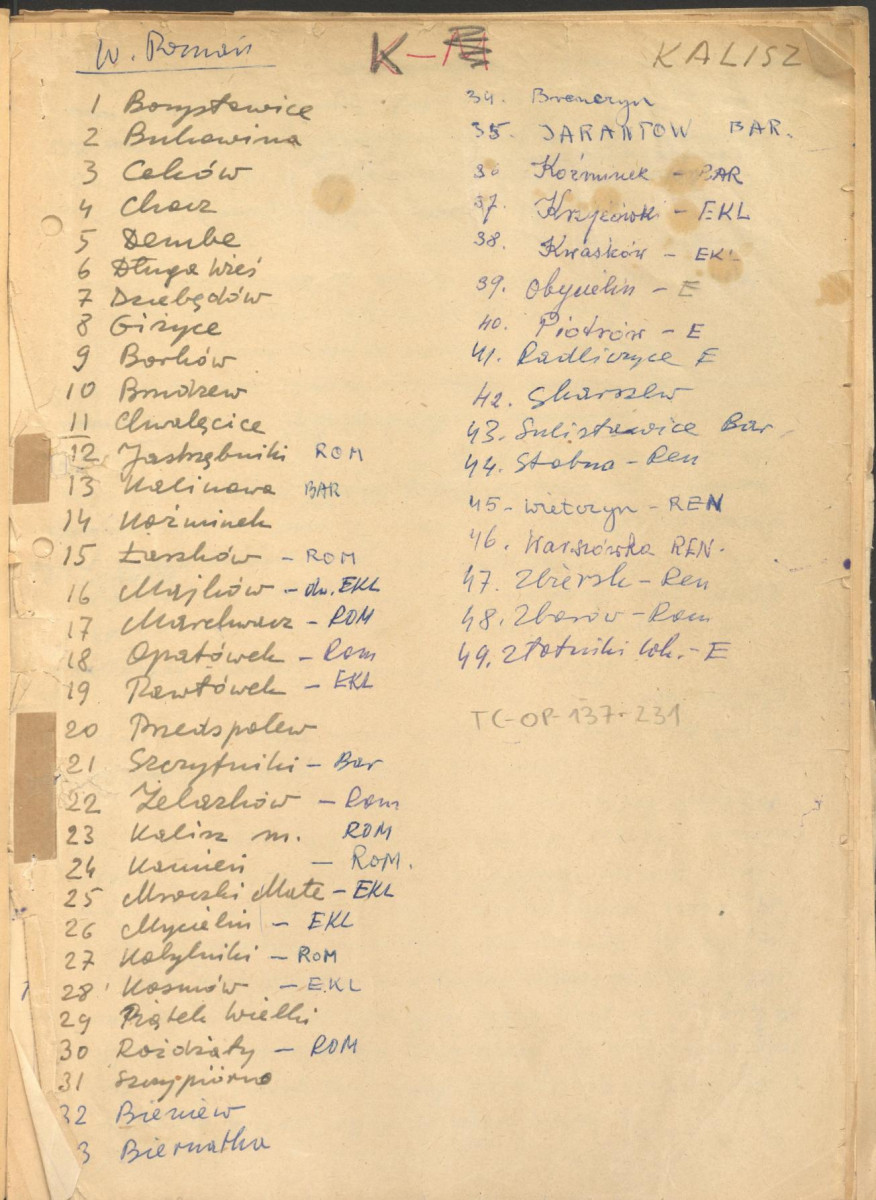 W. Poznań
K-N
KALISZ
1 Borysławice
2 Bukowina
3 Ceków
4 Chocz
5 Dembe
6 Długa Wieś
7 Dzebędów
8 Giżyce
9 Borków
10 Brudzew
11 Chwalęcice
12 Jastrzębniki ROM
13 Kalinowa BAR
14 Koźminek
15 Łaszków - ROM
16 Majków - dw. EKL
17 Marchwacz - ROM
18 Opatówek - Rom
19 Pawłówek - EKL
20 Przedspolew
21 Szczytniki - Bar
22 Żelazków - Rom
23 Kalisz m. ROM
24 Kamień - ROM.
25 Mroczki Małe - EKL
26 Mycielin - EKL
27 Kobylniki - ROM
28 Kosmów - EKL
29 Piątek Wielki
30 Rożdżały - ROM
31 Szczypiorno
32 Bieniew
3 Biernatka
34. Brenczyn
35. JARANTÓW BAR.
36 Koźminek - BAR
37. Krzyżówki - EKL
38. Kwasków - EKL
39. Obycielin - E
40. Piotrów - E
41. Radliczyce E
42. Skarszew
43. Sulisławice Bar
44. Stobno - Ren
45. Wietczyn - REN
46. Warszówka REN.
47. Zbiersk - Ren
48. Zborów - Rom
49. Złotniki Wk. - E
TC-OP-137-231